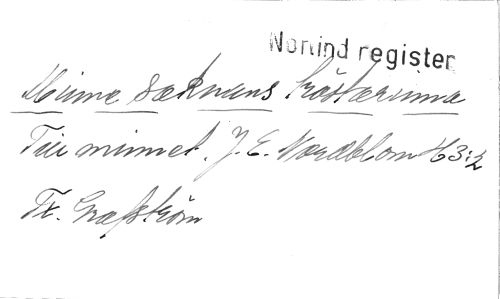 Norlind register
Minne sæknens trösterinna
Till minnet. J. E. Nordblom H3:2
Fr. Grafström